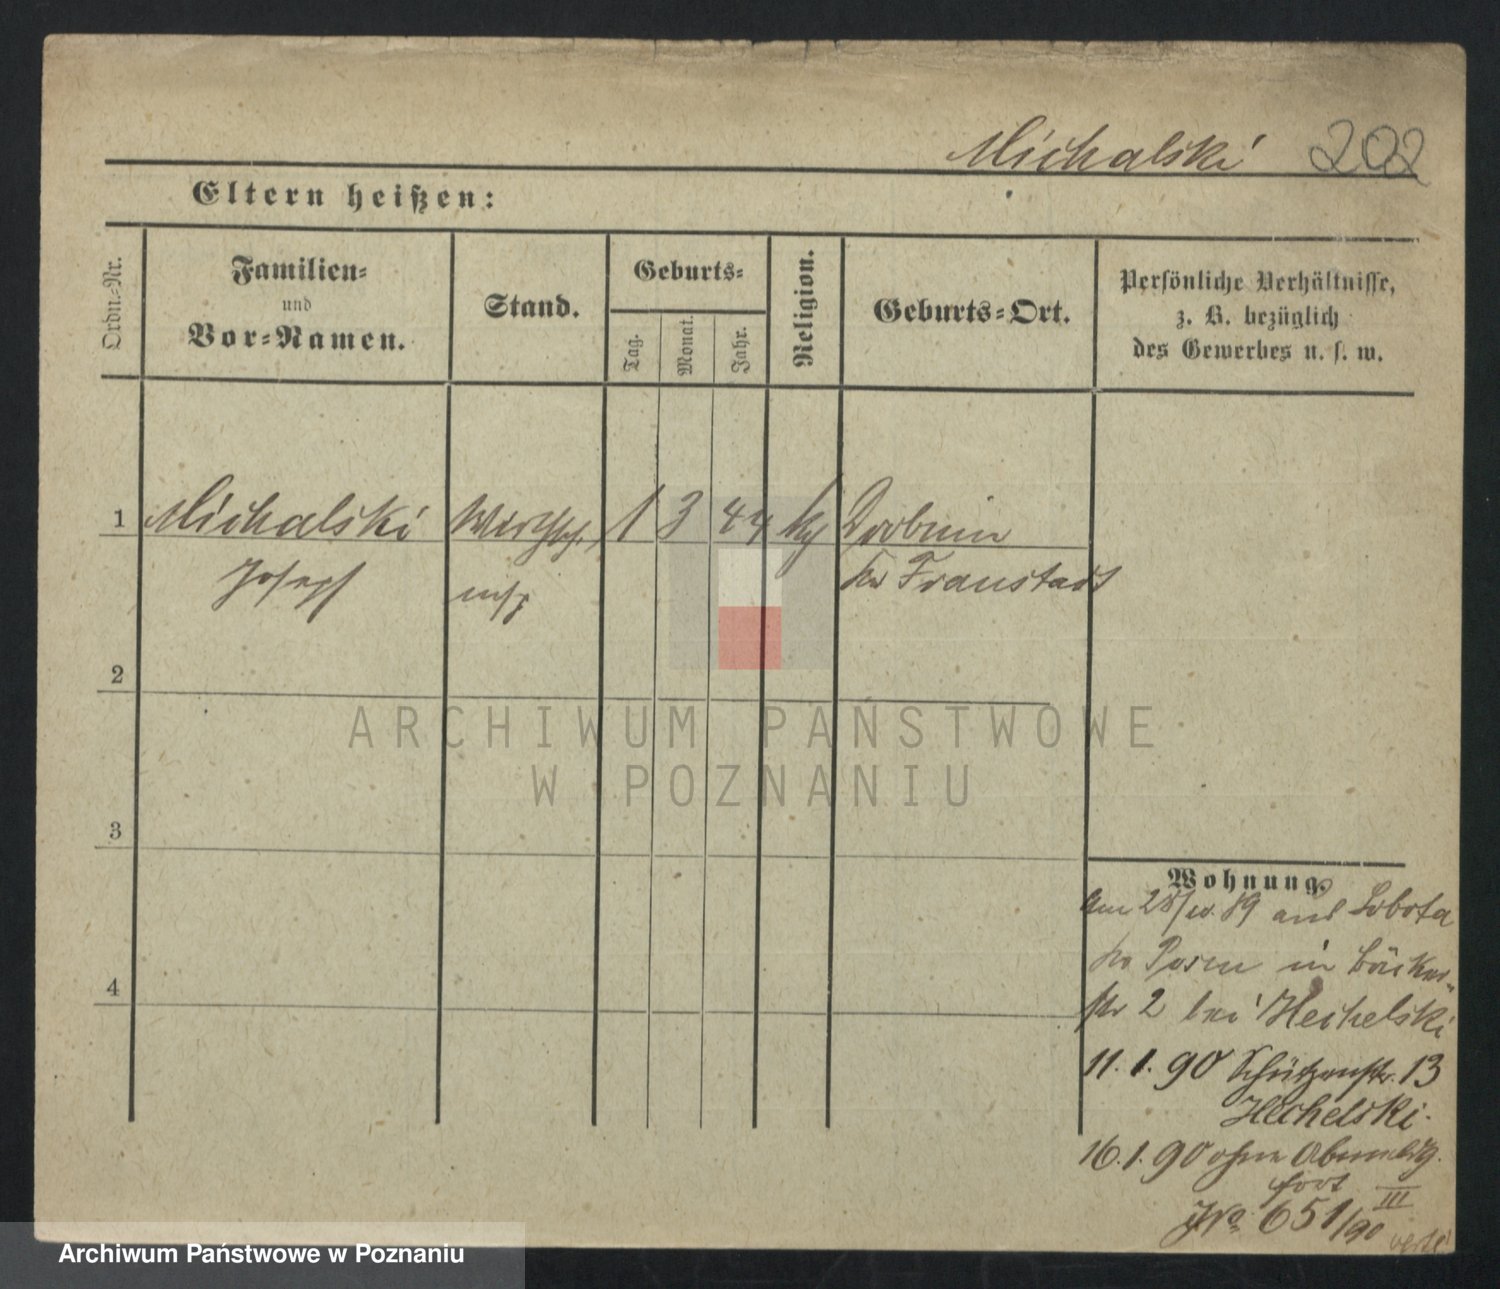 Michalski 202
Eltern heißen:
Ordn.-Nr.
Familien-
und
Vor-Namen.
Stand.
Geburts-
Tag.
Monat.
Jahr.
Religion.
Geburts-Ort.
Persönliche Verhältnisse,
z. B. bezüglich
des Gewerbes u. s. w.
1 Michalski Wirthsch. 1 3 44 kg
Joseph insp Kr Fraustadt
2
ARCHIWUM PAŃSTWOWE
W POZNANIU
3
4
Wohnung
Am 28/10.89 aus Sobota
Kr Posen in Bäcker-
str 2 bei Hechelski
11.1.90 Schützenstr. 13
Hechelski.
16.1.90 ohne Abmeldg.
fort III
JNo 651/90
Archiwum Państwowe w Poznaniu